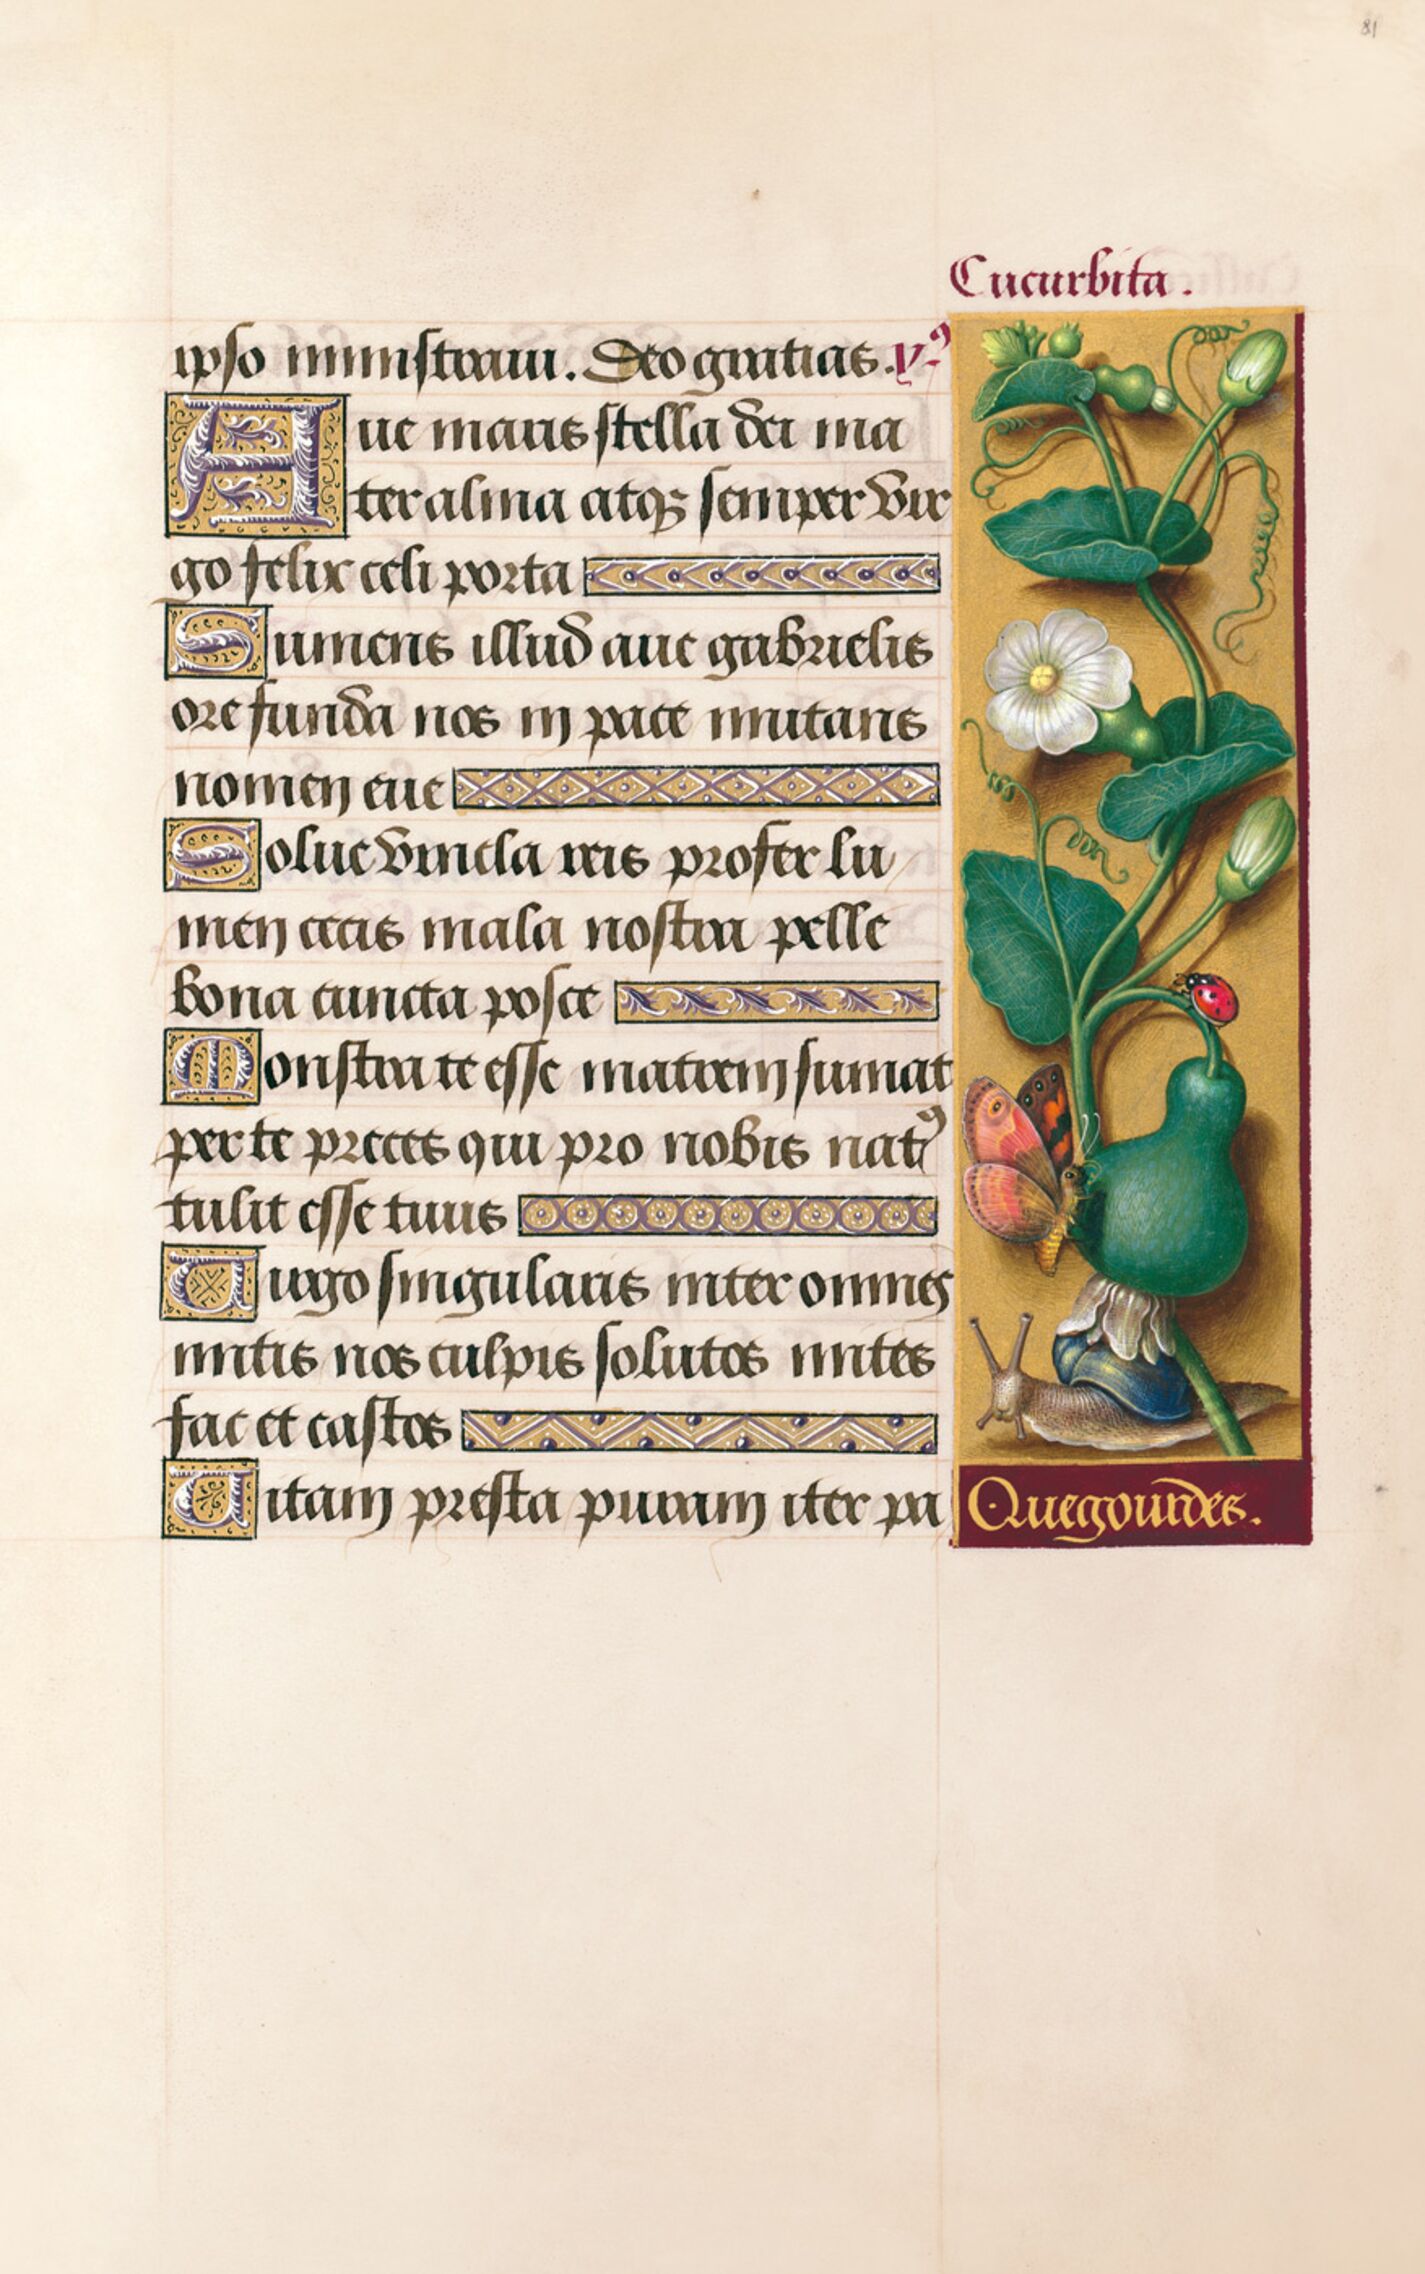 81
Cucurbita.
ipso ministraui. Deo gratias. yꝰ
Aue maris stella dei ma
ter alma atqꝫ semper vir
go felix celi porta
Sumens illud aue gabrielis
ore funda nos in pace mutans
nomen eue
Solue vincla reis profer lu
men cecis mala nostra pelle
bona cuncta posce
Monstra te esse matrem sumat
per te preces qui pro nobis natꝰ
tulit esse tuus
Uirgo singularis inter omnes
mitis nos culpis solutos mites
fac et castos
Uitam presta puram iter pa
Quegourdes.